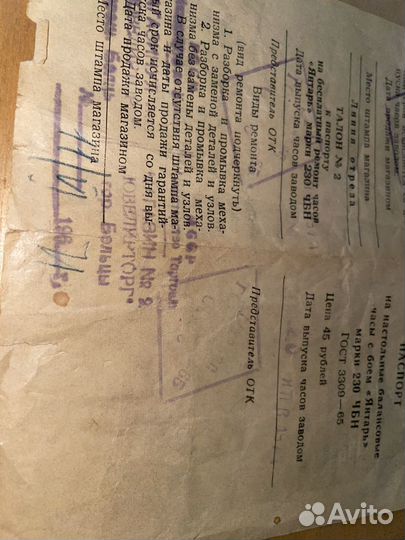 ПАСПОРТ
на настольные балансовые
часы с боем «Янтарь»
марки 230 ЧБН
ГОСТ 3309—65
Цена 45 рублей
Дата выпуска часов заводом
Представитель ОТК
Место штампа магазина
Линия отреза
ТАЛОН № 2
к паспорту
на бесплатный ремонт часов
«Янтарь» марки 230 ЧБН
Дата выпуска часов заводом
Представитель ОТК
Виды ремонта
(вид ремонта подчеркнуть)
1. Разборка и промывка меха-
низма с заменой деталей и узлов.
2. Разборка и промывка меха-
низма без замены деталей и узлов.
В случае отсутствия штампа ма-
газина и даты продажи гарантий-
срок исчисляется со дня вы-
часов заводом.
Дата продажи магазином
ЮВЕЛИРТОРГ
Место штампа магазина
гор Бельцы
196
Avito